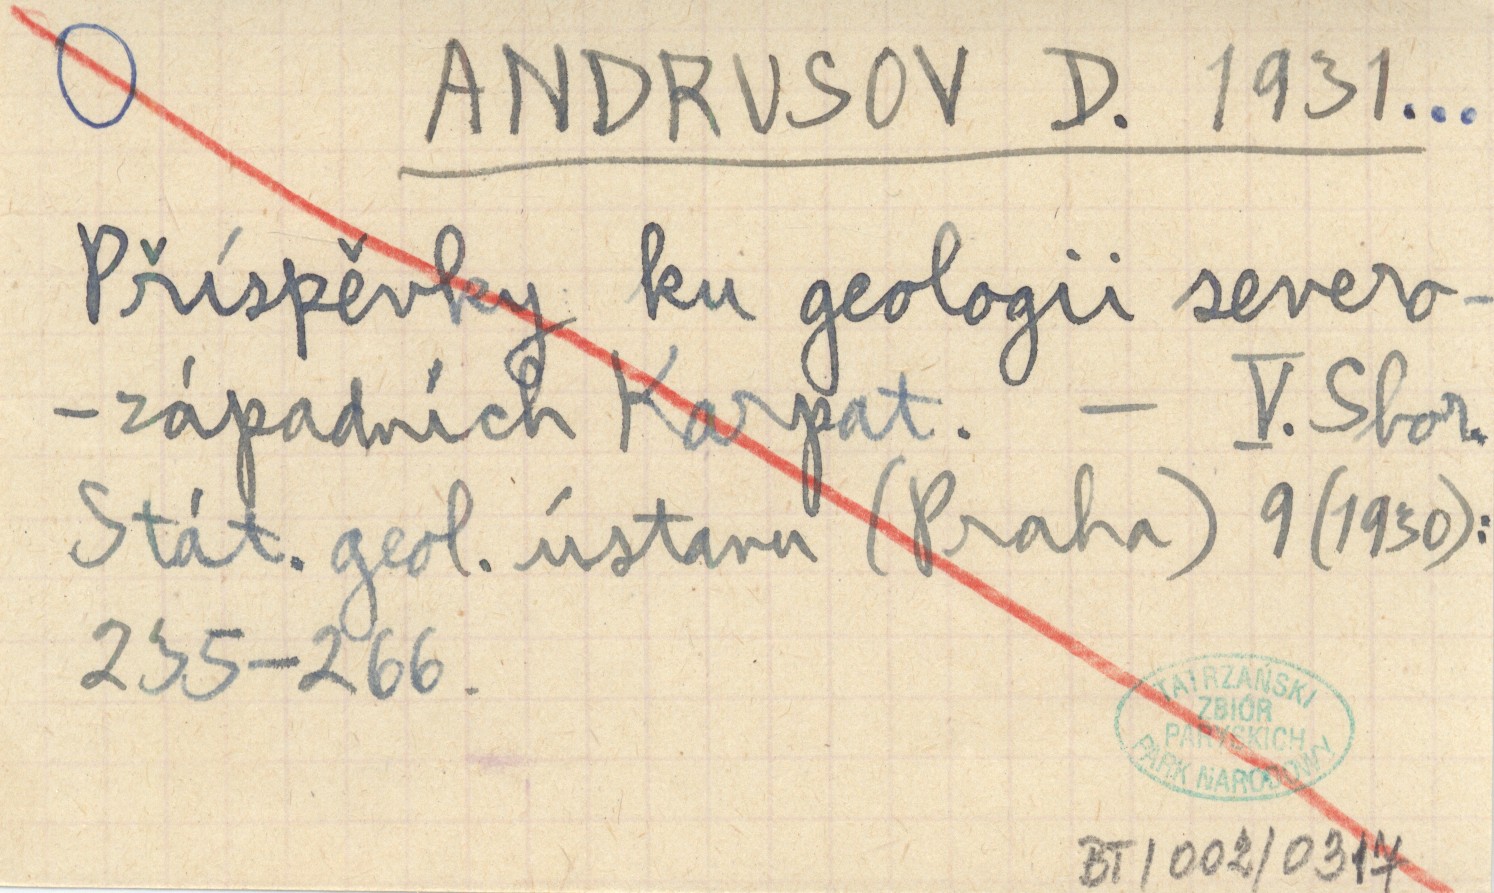 ANDRUSOV D. 1931...
Příspěvky ku geologii severo-
-západních Karpat. — V. Sbor.
Stát. geol. ústavu (Praha) 9 (1930):
235-266.
TATRZAŃSKI
ZBIÓR
PARYSKICH
PARK NARODOWY
BT/002/0317